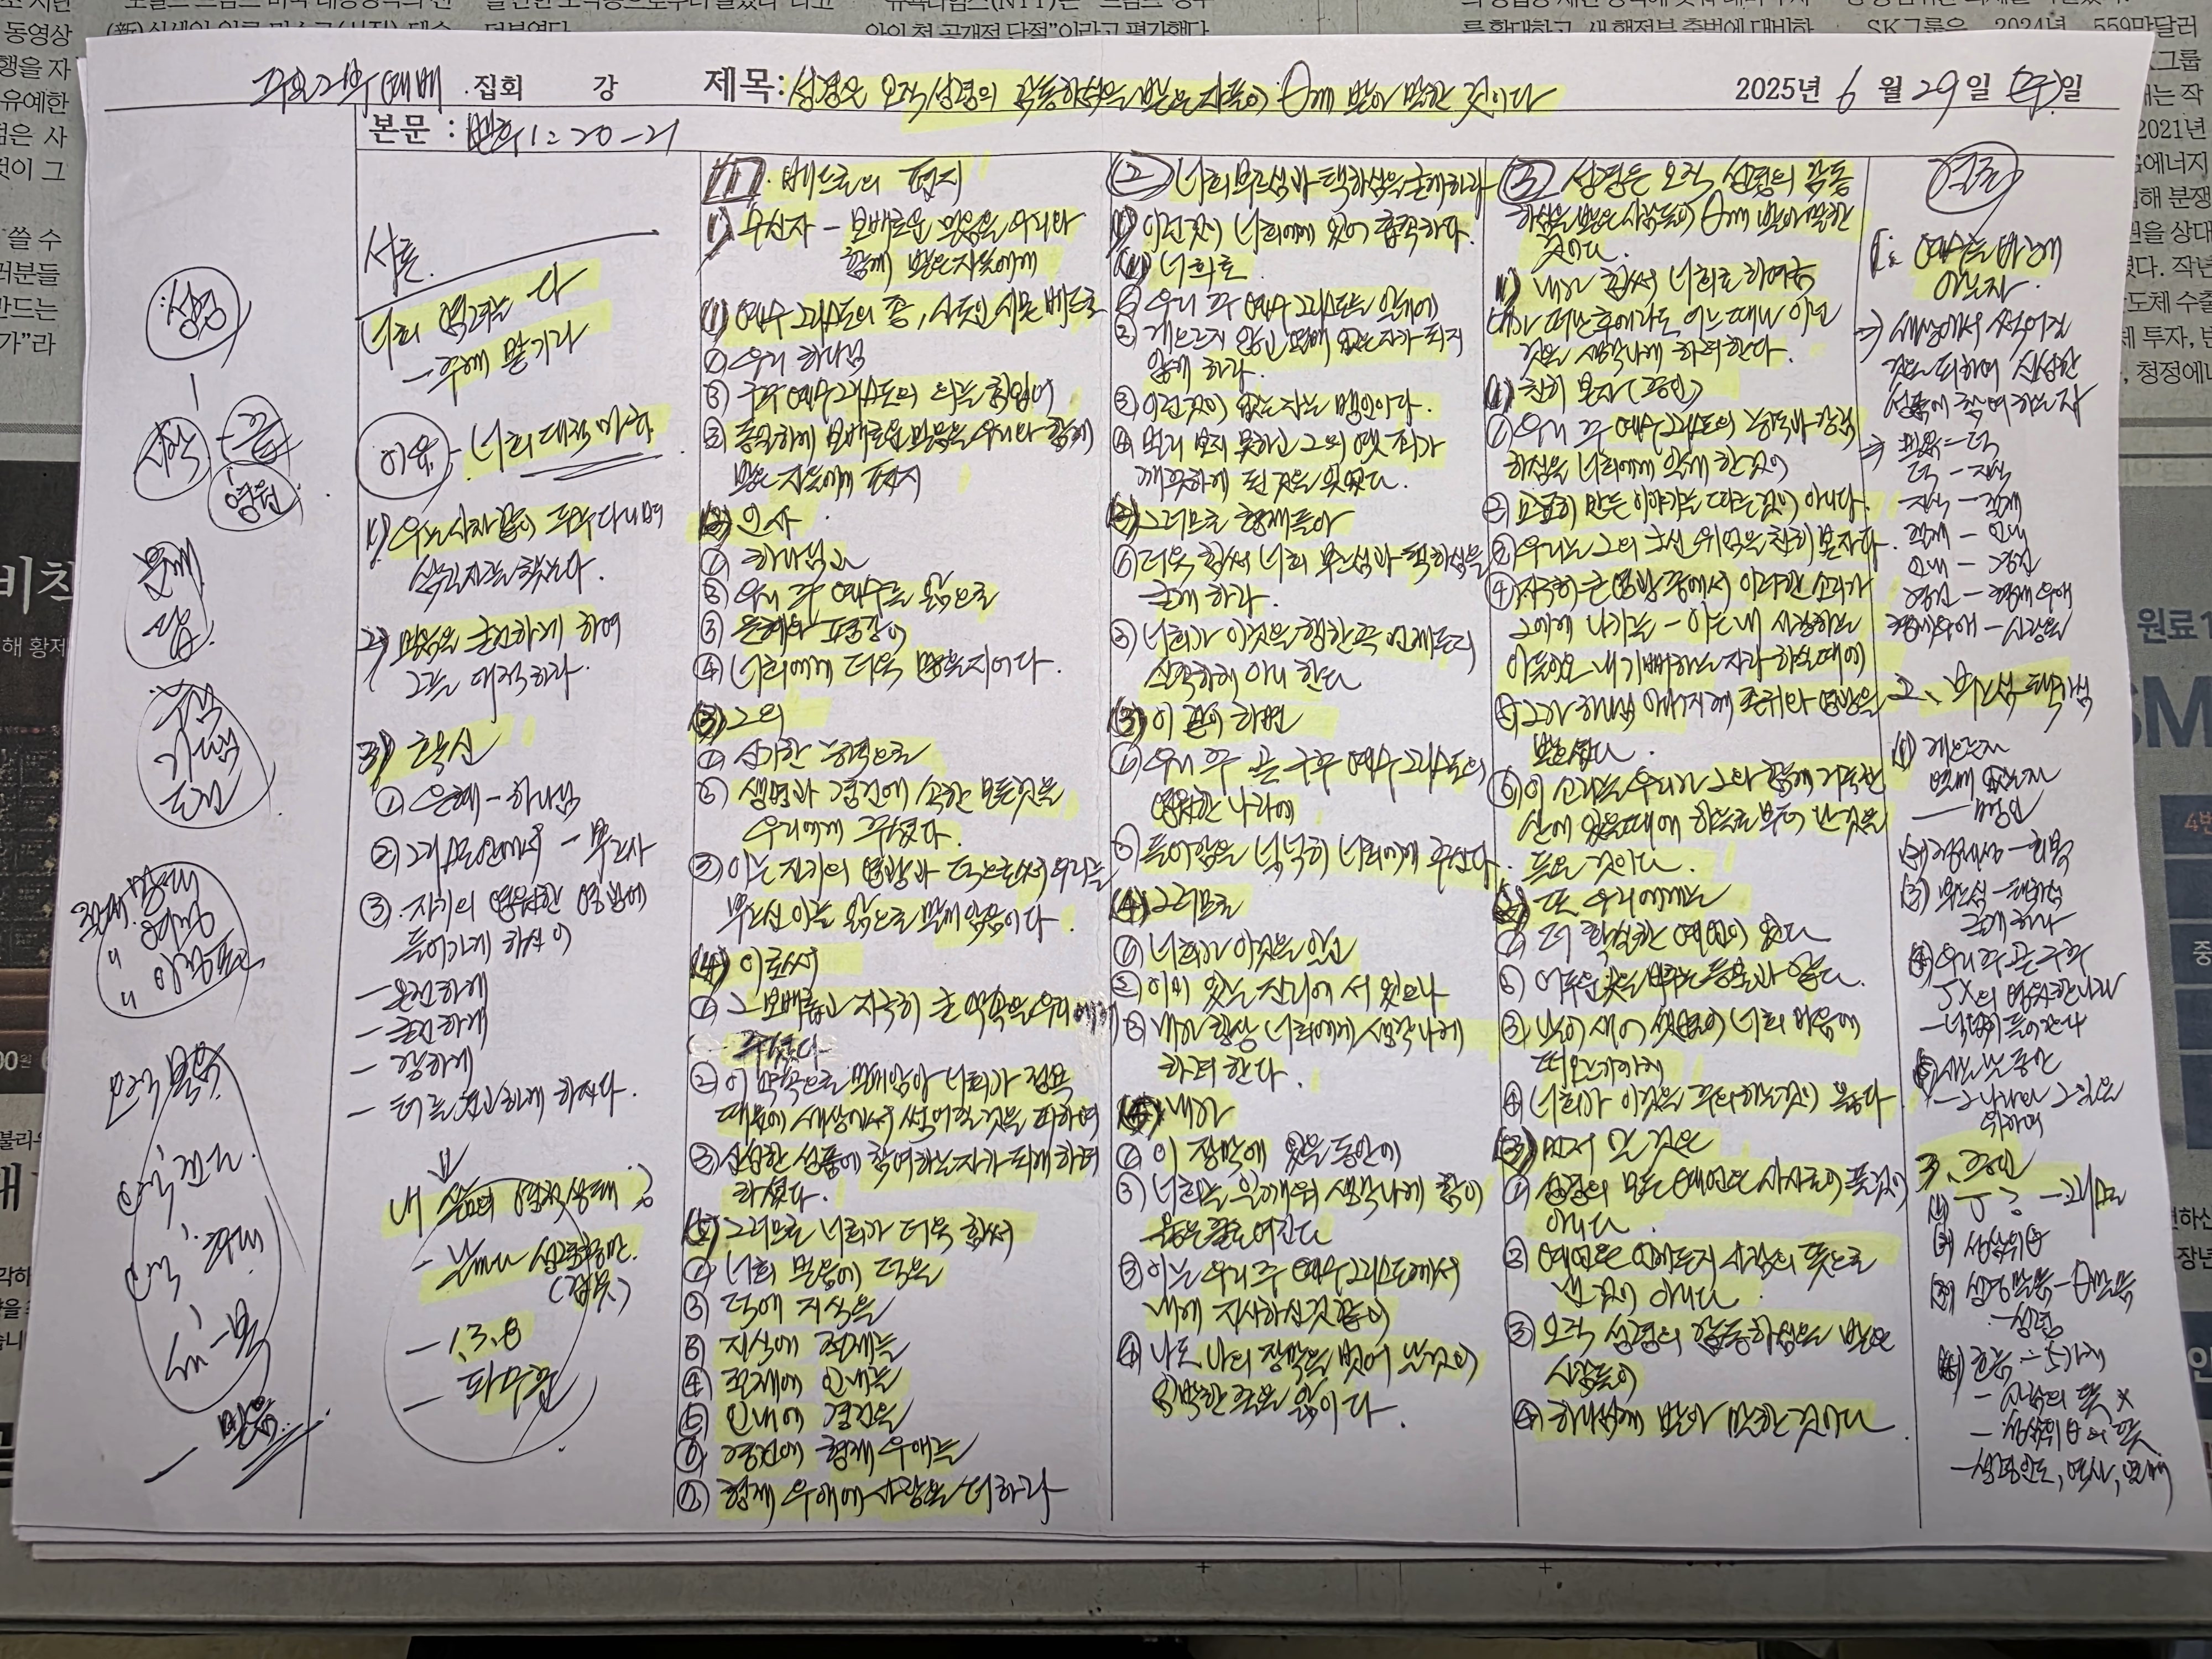 주일2부예배 집회 강 제목: 성경은 오직 성령의 감동하심을 받은 자들이 θ께 받아 말한 것이다
2025년 6월 29일 (주)일
본문 : 벧후 1:20-21
성경
시작 - 끝
영원
문제
답
오직 말씀
믿음
서론
너희 염려는 다
- 주께 맡기라
이유 - 너희 대적 마귀
1) 우는 사자 같이 두루 다니며
삼킬 자를 찾는다.
2) 믿음을 굳건하게 하여
그를 대적하라.
3) 확신
① 은혜 - 하나님
② 그리스도 안에서 - 부르사
③ 자기의 영원한 영광에
들어가게 하신 이
- 온전하게
- 굳건하게
- 강하게
- 터를 견고하게 하신다.
내 삶의 영적상태?
- 날마다 성령충만.
- 1.3.8
- 파수꾼
1. 베드로의 편지
1) 수신자 - 보배로운 믿음을 우리와
함께 받은 자들에게
(1) 예수 그리스도의 종, 사도인 시몬 베드로
① 우리 하나님
② 구주 예수 그리스도의 의를 힘입어
③ 동일하게 보배로운 믿음을 우리와 함께
받은 자들에게 편지
(2) 인사
① 하나님과
② 우리 주 예수를 앎으로
③ 은혜와 평강이
④ 너희에게 더욱 많을지어다.
(3) 그의
① 신기한 능력으로
② 생명과 경건에 속한 모든 것을
우리에게 주셨다.
③ 이는 자기의 영광과 덕으로써 우리를
부르신 이를 앎으로 말미암음이다.
(4) 이로써
① 그 보배롭고 지극히 큰 약속을 우리에게
주셨다
② 이 약속으로 말미암아 너희가 정욕
때문에 세상에서 썩어질 것을 피하여
③ 신성한 성품에 참여하는 자가 되게 하려
하셨다.
(5) 그러므로 너희가 더욱 힘써
① 너희 믿음에 덕을
② 덕에 지식을
③ 지식에 절제를
④ 절제에 인내를
⑤ 인내에 경건을
⑥ 경건에 형제 우애를
⑦ 형제 우애에 사랑을 더하라
2 너희 부르심과 택하심을 굳게 하라
1) 이런 것이 너희에게 있어 흡족하다.
(1) 너희로
① 우리 주 예수 그리스도를 알기에
② 게으르지 않고 열매 없는 자가 되지
않게 하라.
③ 이런 것이 없는 자는 맹인이다.
④ 멀리 보지 못하고 그의 옛 죄가
깨끗하게 된 것을 잊었다.
(2) 그러므로 형제들아
① 더욱 힘써 너희 부르심과 택하심을
굳게 하라.
② 너희가 이것을 행한즉 언제든지
실족하지 아니 한다
(3) 이 같이 하면
① 우리 주 곧 구주 예수 그리스도의
영원한 나라에
② 들어감을 넉넉히 너희에게 주신다.
(4) 그러므로
① 너희가 이것을 알고
② 이미 있는 진리에 서 있으나
③ 내가 항상 너희에게 생각나게
하려 한다.
(5) 내가
① 이 장막에 있을 동안에
② 너희를 일깨워 생각나게 함이
옳은 줄로 여긴다
③ 이는 우리 주 예수 그리스도께서
내게 지시하신 것 같이
④ 나도 나의 장막을 벗어날 것이
임박한 줄을 앎이다.
3 성경은 오직 성령의 감동
하심을 받은 사람들이 θ께 받아 말한
것이다
1) 내가 힘써 너희로 하여금
내가 떠난 후에라도 어느 때나 이런
것을 생각나게 하려 한다.
(1) 친히 본 자 (증인)
① 우리 주 예수 그리스도의 능력과 강림
하심을 너희에게 알게 한 것이
② 교묘히 만든 이야기를 따른 것이 아니다.
③ 우리는 그의 크신 위엄을 친히 본 자다.
④ 지극히 큰 영광 중에서 이러한 소리가
그에게 나기를 - 이는 내 사랑하는
아들이요 내 기뻐하는 자라 하실 때에
⑤ 그가 하나님 아버지께 존귀와 영광을
받으셨다.
⑥ 이 소리는 우리가 그와 함께 거룩한
산에 있을 때에 하늘로부터 난 것을
들은 것이다.
(2) 또 우리에게는
① 더 확실한 예언이 있다
② 어두운 곳을 비추는 등불과 같다.
③ 날이 새어 샛별이 너희 마음에
떠오르기까지
④ 너희가 이것을 주의하는 것이 옳다
(3) 먼저 알 것은
① 성경의 모든 예언은 사사로이 풀 것이
아니다.
② 예언은 언제든지 사람의 뜻으로
낸 것이 아니다.
③ 오직 성령의 감동하심을 받은
사람들이
④ 하나님께 받아 말한 것이다.
결론
1. 예수를 바르게
아는 자.
⇒ 세상에서 썩어질
것을 피하여 신성한
성품에 참여하는 자
⇒ 믿음 - 덕
덕 - 지식
지식 - 절제
절제 - 인내
인내 - 경건
경건 - 형제 우애
형제 우애 - 사랑을
2. 부르심 택하심
(1) 게으른 자
열매 없는 자
- 맹인
(2) 정체성 - 회복
(3) 부르심 - 택하심
굳게 하라
(4) 우리 주 곧 구주
JX의 영원한 나라
- 넉넉히 들어간다
3. 증인
(2) 성삼위 θ
(3) 성경 말씀 - θ 말씀
- 성령
- 사람의 뜻 X
- 성삼위 θ의 뜻
- 성령인도, 역사, 열매